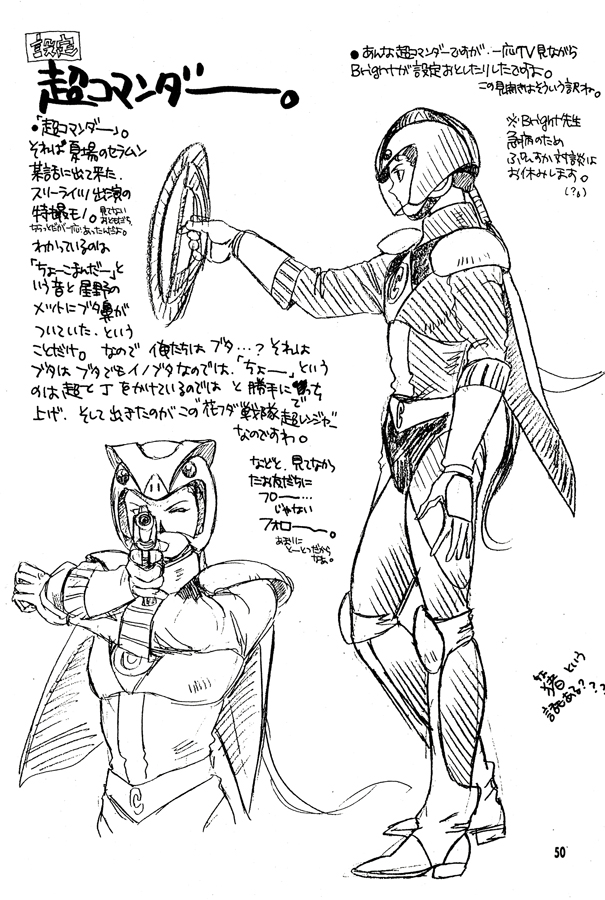 設定
超コマンダー。
●「超コマンダー」。
それは 夏場のセラムン
某話に出て来た.
スリーライツ出演の
特撮モノ。見てない
おともだち
わかっているのは
「ちょーこまんだー」と
いう音と星野の
メットにブタ鼻が
ついていた. という
ことだけ。なので 俺たちは ブタ…? それは
ブタはブタでもイノブタなのでは.「ちょー」という
のは超と丁をかけているのでは と 勝手に
上げ. そして出きたのが この 花フダ戦隊 超レンジャー
なのですわ。
などと. 見てなかっ
たお友だちに
フロー…
じゃない
フォロー。
あまりに
とーとつだから
なぁ。
●あんな超コマンダーですが. 一応TV見ながら
Brightが設定おこしたりしたですよ。
この見開きはそういう訳ね。
※Bright先生
急病のため
ふんすか対談は
お休みします。
(?。)
猪という
話もある???
C
C
50